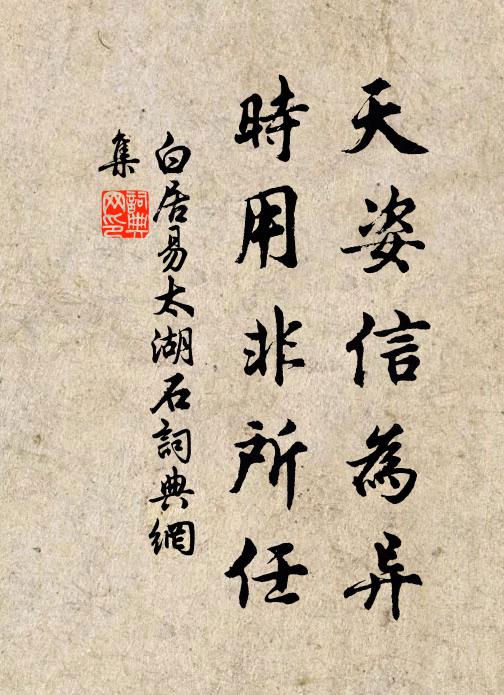 天姿信為异
時用非所任
白居易太湖石詞典網
集
詞典
网印